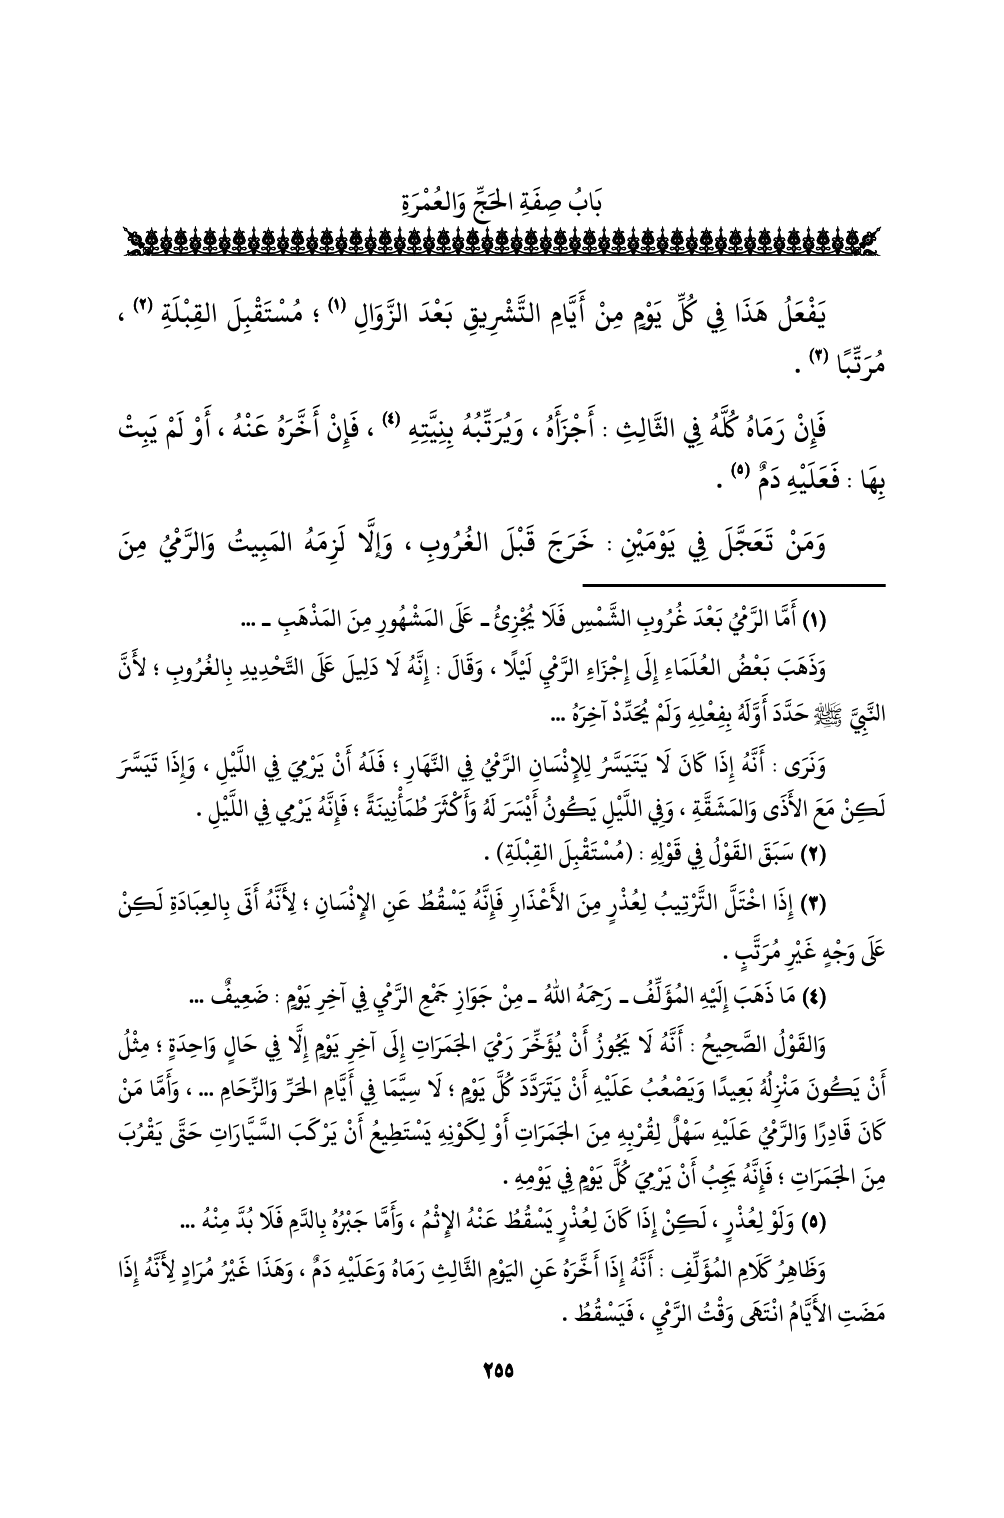 بَابُ صِفَةِ الحَجِّ وَالعُمْرَةِ
يَفْعَلُ هَذَا فِي كُلِّ يَوْمٍ مِنْ أَيَّامِ التَّشْرِيقِ بَعْدَ الزَّوَالِ (١) ؛ مُسْتَقْبِلَ القِبْلَةِ (٢) ،
مُرَتِّبًا (٣) .
فَإِنْ رَمَاهُ كُلَّهُ فِي الثَّالِثِ : أَجْزَأَهُ ، وَيُرَتِّبُهُ بِنِيَّتِهِ (٤) ، فَإِنْ أَخَّرَهُ عَنْهُ ، أَوْ لَمْ يَبِتْ
بِهَا : فَعَلَيْهِ دَمٌ (٥) .
وَمَنْ تَعَجَّلَ فِي يَوْمَيْنِ : خَرَجَ قَبْلَ الغُرُوبِ ، وَإِلَّا لَزِمَهُ المَبِيتُ وَالرَّمْيُ مِنَ
(١) أَمَّا الرَّمْيُ بَعْدَ غُرُوبِ الشَّمْسِ فَلَا يُجْزِئُ ـ عَلَى المَشْهُورِ مِنَ المَذْهَبِ ـ ...
وَذَهَبَ بَعْضُ العُلَمَاءِ إِلَى إِجْزَاءِ الرَّمْيِ لَيْلًا ، وَقَالَ : إِنَّهُ لَا دَلِيلَ عَلَى التَّحْدِيدِ بِالغُرُوبِ ؛ لأَنَّ
النَّبِيَّ ﷺ حَدَّدَ أَوَّلَهُ بِفِعْلِهِ وَلَمْ يُحَدِّدْ آخِرَهُ ...
وَنَرَى : أَنَّهُ إِذَا كَانَ لَا يَتَيَسَّرُ لِلإِنْسَانِ الرَّمْيُ فِي النَّهَارِ ؛ فَلَهُ أَنْ يَرْمِيَ فِي اللَّيْلِ ، وَإِذَا تَيَسَّرَ
لَكِنْ مَعَ الأَذَى وَالمَشَقَّةِ ، وَفِي اللَّيْلِ يَكُونُ أَيْسَرَ لَهُ وَأَكْثَرَ طُمَأْنِينَةً ؛ فَإِنَّهُ يَرْمِي فِي اللَّيْلِ .
(٢) سَبَقَ القَوْلُ فِي قَوْلِهِ : (مُسْتَقْبِلَ القِبْلَةِ) .
(٣) إِذَا اخْتَلَّ التَّرْتِيبُ لِعُذْرٍ مِنَ الأَعْذَارِ فَإِنَّهُ يَسْقُطُ عَنِ الإِنْسَانِ ؛ لِأَنَّهُ أَتَى بِالعِبَادَةِ لَكِنْ
عَلَى وَجْهٍ غَيْرِ مُرَتَّبٍ .
(٤) مَا ذَهَبَ إِلَيْهِ المُؤَلِّفُ ـ رَحِمَهُ اللهُ ـ مِنْ جَوَازِ جَمْعِ الرَّمْيِ فِي آخِرِ يَوْمٍ : ضَعِيفٌ ...
وَالقَوْلُ الصَّحِيحُ : أَنَّهُ لَا يَجُوزُ أَنْ يُؤَخِّرَ رَمْيَ الجَمَرَاتِ إِلَى آخِرِ يَوْمٍ إِلَّا فِي حَالٍ وَاحِدَةٍ ؛ مِثْلُ
أَنْ يَكُونَ مَنْزِلُهُ بَعِيدًا وَيَصْعُبُ عَلَيْهِ أَنْ يَتَرَدَّدَ كُلَّ يَوْمٍ ؛ لَا سِيَّمَا فِي أَيَّامِ الحَرِّ وَالزِّحَامِ ... ، وَأَمَّا مَنْ
كَانَ قَادِرًا وَالرَّمْيُ عَلَيْهِ سَهْلٌ لِقُرْبِهِ مِنَ الجَمَرَاتِ أَوْ لِكَوْنِهِ يَسْتَطِيعُ أَنْ يَرْكَبَ السَّيَّارَاتِ حَتَّى يَقْرُبَ
مِنَ الجَمَرَاتِ ؛ فَإِنَّهُ يَجِبُ أَنْ يَرْمِيَ كُلَّ يَوْمٍ فِي يَوْمِهِ .
(٥) وَلَوْ لِعُذْرٍ ، لَكِنْ إِذَا كَانَ لِعُذْرٍ يَسْقُطُ عَنْهُ الإِثْمُ ، وَأَمَّا جَبْرُهُ بِالدَّمِ فَلَا بُدَّ مِنْهُ ...
وَظَاهِرُ كَلَامِ المُؤَلِّفِ : أَنَّهُ إِذَا أَخَّرَهُ عَنِ اليَوْمِ الثَّالِثِ رَمَاهُ وَعَلَيْهِ دَمٌ ، وَهَذَا غَيْرُ مُرَادٍ لِأَنَّهُ إِذَا
مَضَتِ الأَيَّامُ انْتَهَى وَقْتُ الرَّمْيِ ، فَيَسْقُطُ .
٢٥٥